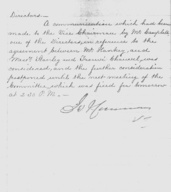 Directors.—
A communication which had been
made to the Vice Chairman by Mr Campbell
one of the Directors, in reference to the
agreement between Mr Starkey, and
Messrs Starkey and was
considered, and the further consideration
postponed until the next meeting of the
Committee, which was fixed for tomorrow
at 2.30 P.M.